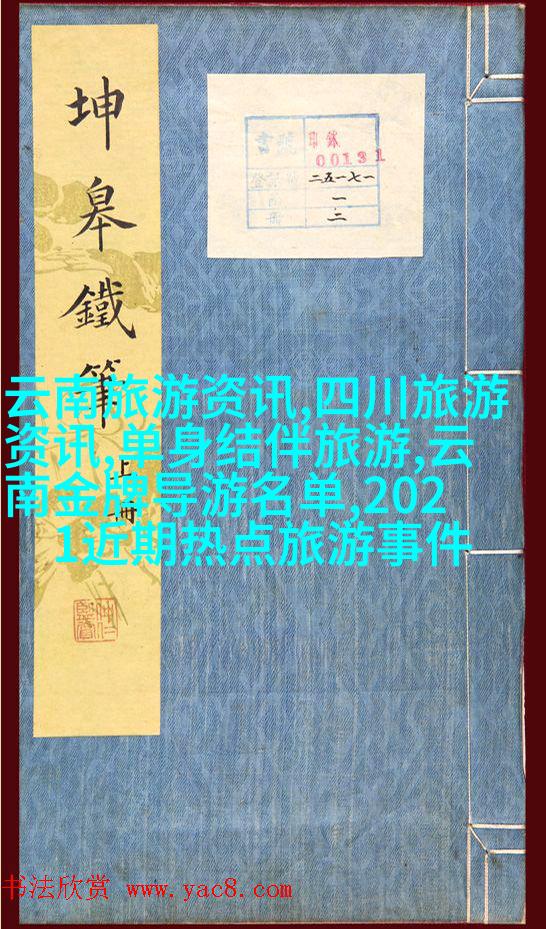 坤皋鐵筆
上册
書號 印錄
00131
二五一七一
一
册 二
云南旅游资讯,四川旅游
资讯,单身结伴旅游,云
南金牌导游名单,202
1近期热点旅游事件
书法欣赏 www.yac8.com